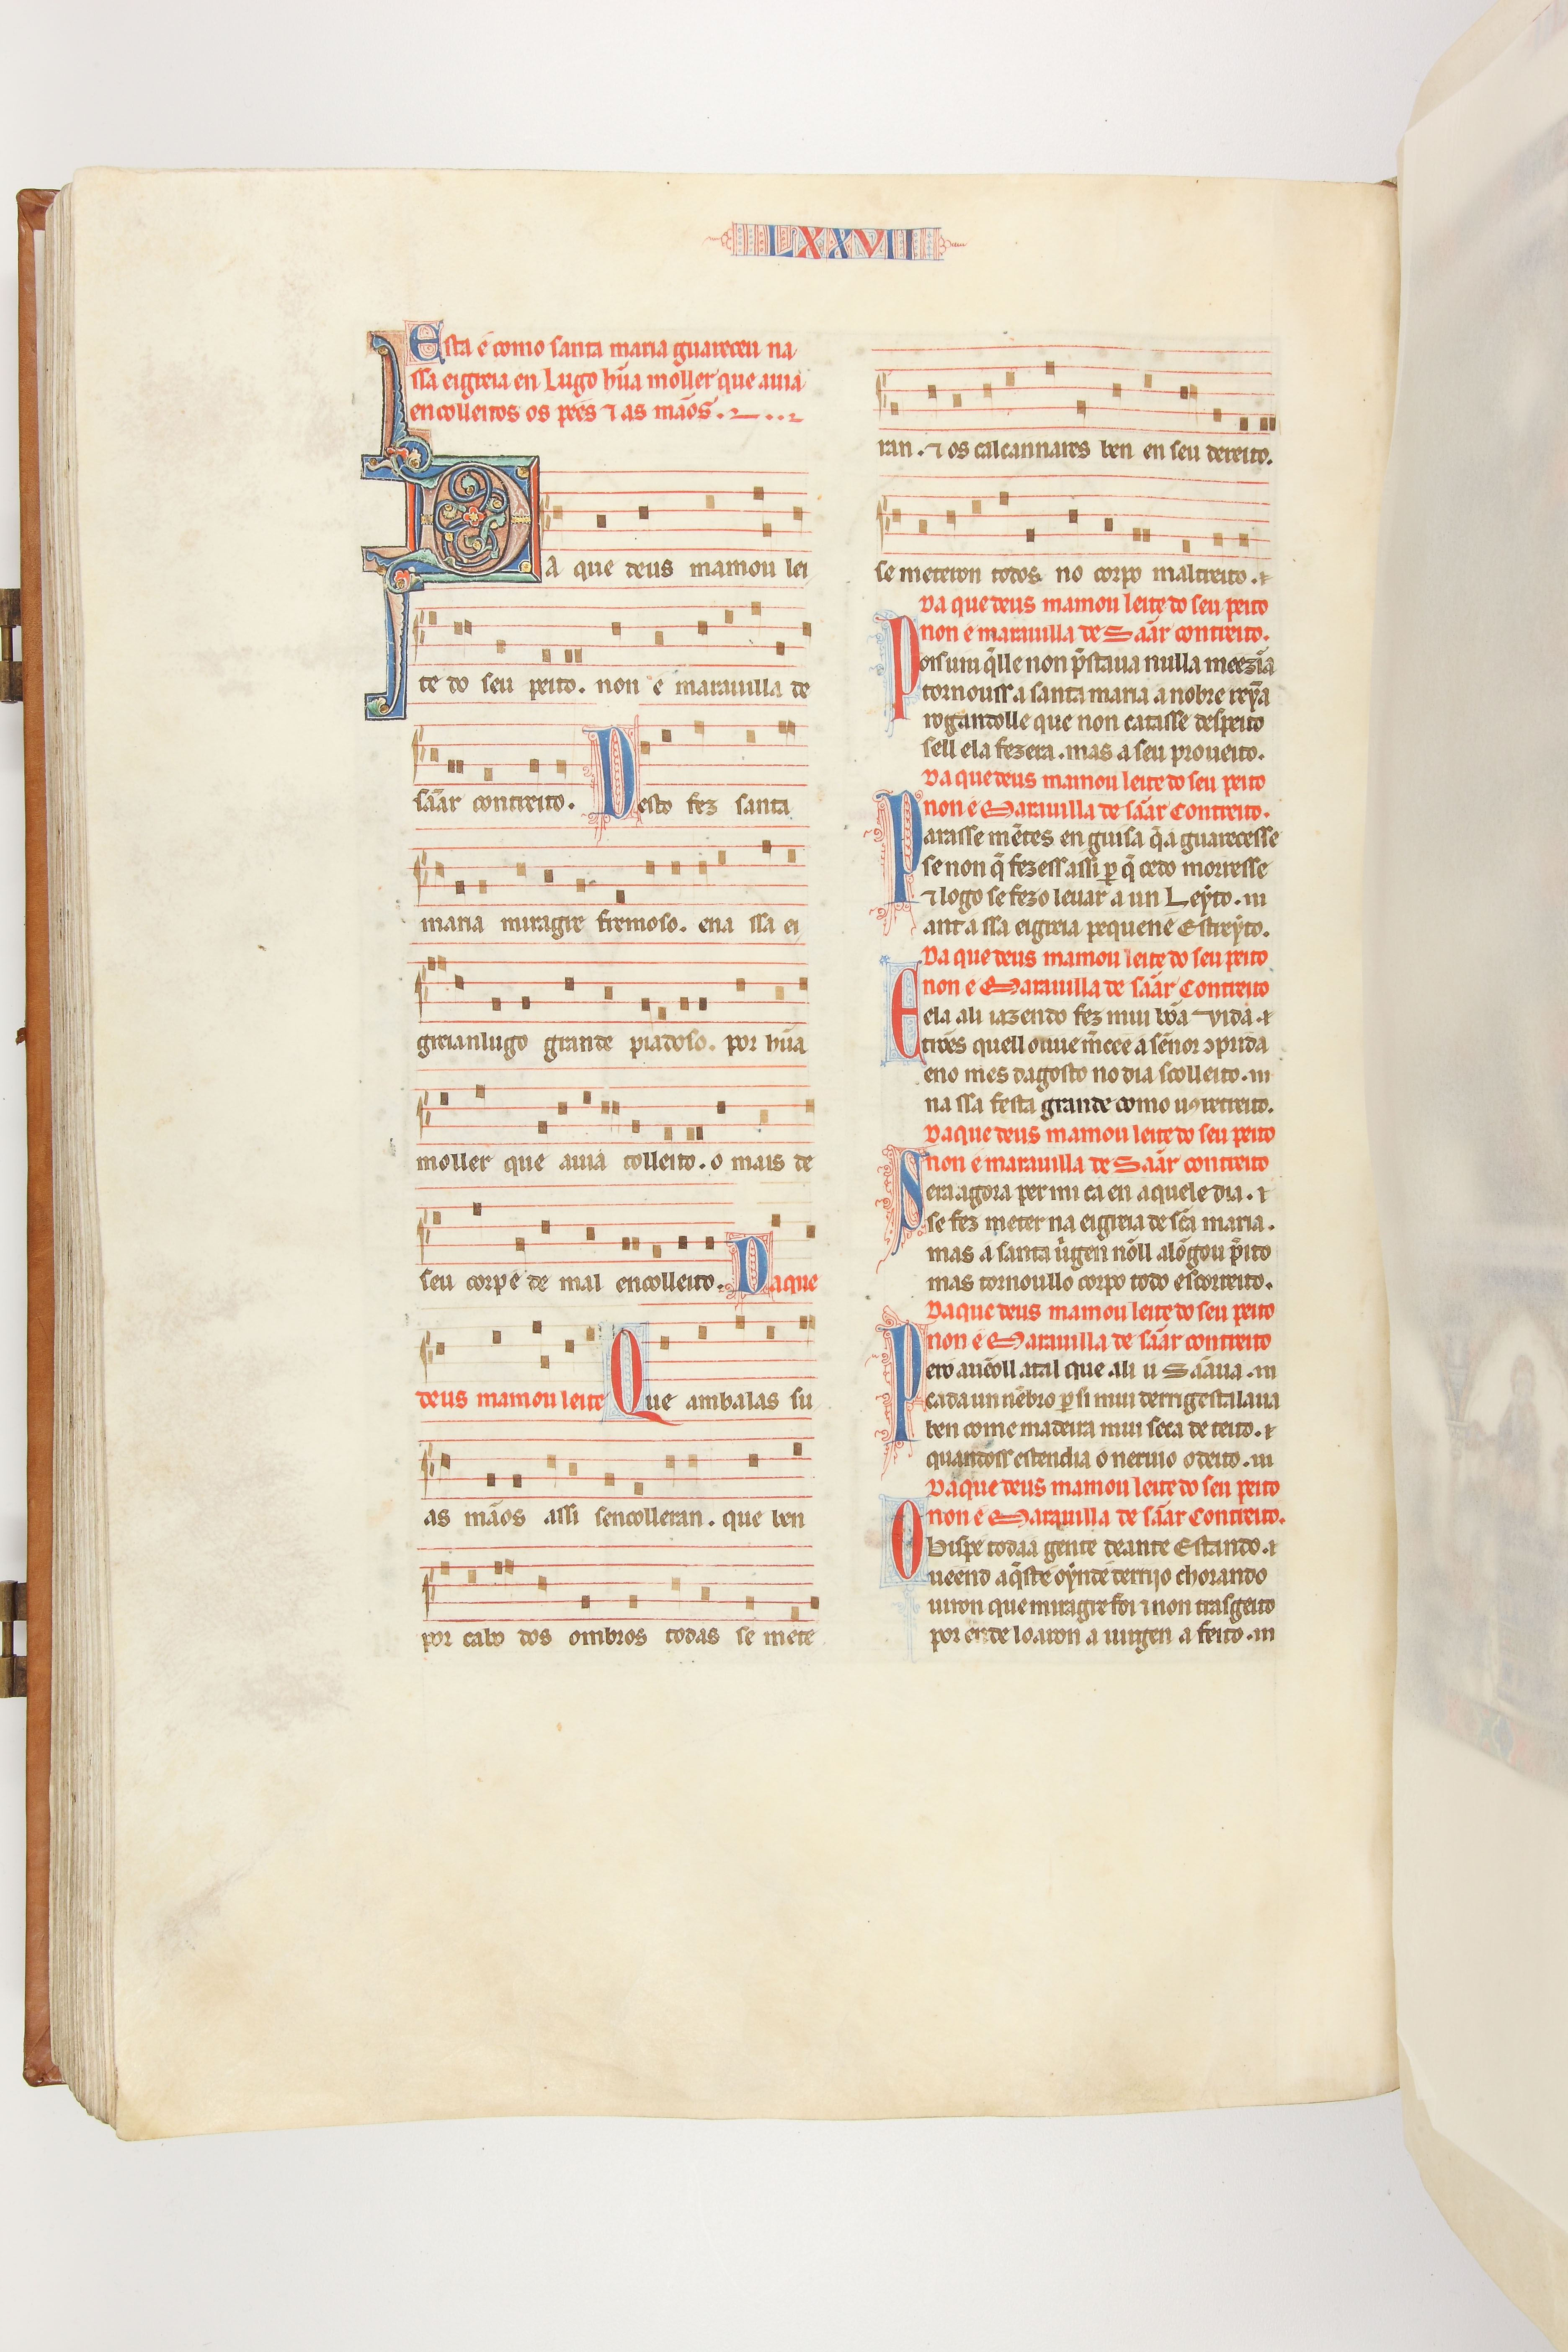 LXXVII
Esta é como santa maria guareceu na
ssa eigreia en Lugo hũa moller que auia
encolleitos os pées ⁊ as mãos.
DA que deus mamou lei
te do seu peito. non é marauilla de
sãar contreito. Desto fez santa
maria miragre fremoso. ena ssa ei
greianlugo grande piadoso. por hũa
moller que auia tolleito. o mais de
seu corpé de mal encolleito. Daque
deus mamou leite Que ambalas su
as mãos assi sencolleran. que ben
por cabo dos ombros todas se mete
ran. ⁊ os calcannares ben en seu dereito.
se meteron todos no corpo maltreito. ⁊
Da que deus mamou leite do seu peito
non é marauilla de Sãar contreito.
Pois uiu q̃lle non p̃staua nulla meezỹa
tornouss a santa maria a nobre reỹa
rogandolle que non catasse despeito
sell ela fezera. mas a seu proueito.
Da que deus mamou leite do seu peito
non é Marauilla de sãar Contreito.
Parasse mẽtes en guisa q̃a guarecesse
se non q̃ fezess assi ꝑ q̃ cedo morresse
⁊ logo se fezo leuar a un Leýto. m
ant a ssa eigreia pequené Estreýto.
Da que deus mamou leite do seu peito
non é Marauilla de sãar Contreito
E ela ali iazendo fez mui bõa vida. ⁊
trões quell ouue m̃cee a sẽnor ɔprida
eno mes dagosto no dia scolleito. m
na ssa festa grande como uꝯ retreito.
Daque deus mamou leite do seu peito
non é marauilla de Sãar contreito
Sera agora per mi ca en aquele dia. ⁊
se fez meter na eigreia de sc̃a maria.
mas a santa ũgen nõll alõgou p̃ito
mas tornoullo corpo todo escorreito.
Daque deus mamou leite do seu peito
non é Marauilla de sãar contreito
Pero auẽoll atal que ali u Sãaua. m
cada un nẽbro ꝑ si mui derrigestalaua
ben come madeira mui seca de teito. ⁊
quandoss estendia o neruio odeito. m
Daque deus mamou leite do seu peito
non é Marauilla de sãar Contreito.
O Bispe todaa gente deante Estando. ⁊
ueend aq̃sté oýnde derrijo chorando
uiron que miragre foi ⁊ non trasgeito
por ende loaron a uirgen a feito. m